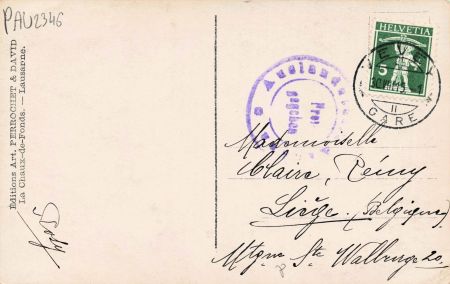 PAU2346
HELVETIA
5
VEVEY
II
GARE
Auslandst
Frei
gegeben
Éditions Art. PERROCHET & DAVID
La Chaux-de-Fonds. — Lausanne.
Mademoiselle
Claire, Rémy
Liège. (Belgique)
Mtgne Ste Walburge 20.